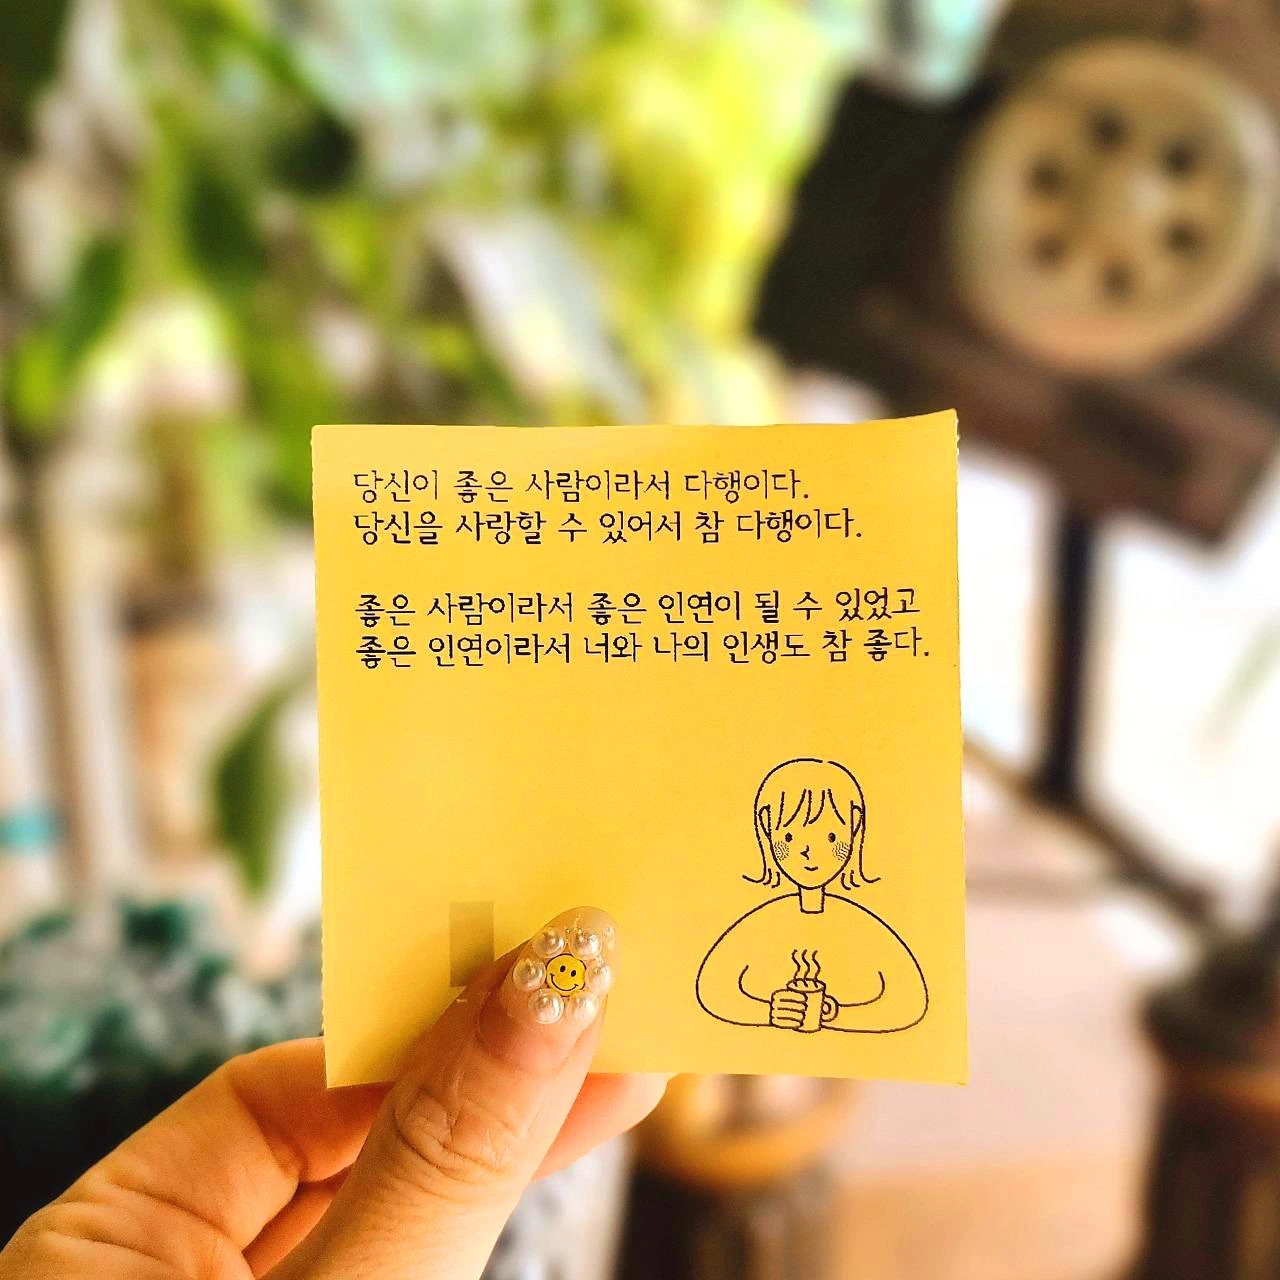 당신이 좋은 사람이라서 다행이다.
당신을 사랑할 수 있어서 참 다행이다.
좋은 사람이라서 좋은 인연이 될 수 있었고
좋은 인연이라서 너와 나의 인생도 참 좋다.